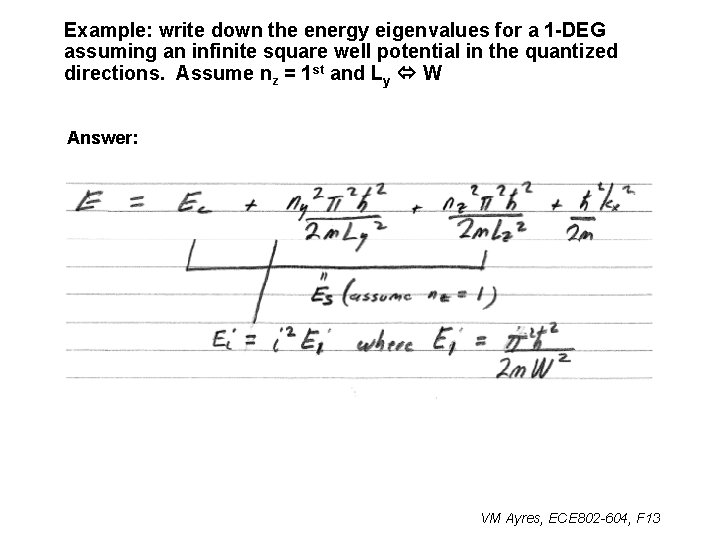 Example: write down the energy eigenvalues for a 1-DEG
assuming an infinite square well potential in the quantized
directions. Assume n_z = 1st and L_y ⇔ W
Answer:
E = E_c + n_y²π²ħ²/2mL_y² + n_z²π²ħ²/2mL_z² + ħ²k_x²/2m
" E_s (assume n_z = 1)
E_i' = i² E_1' where E_1' = π²ħ²/2mW²
VM Ayres, ECE802-604, F13